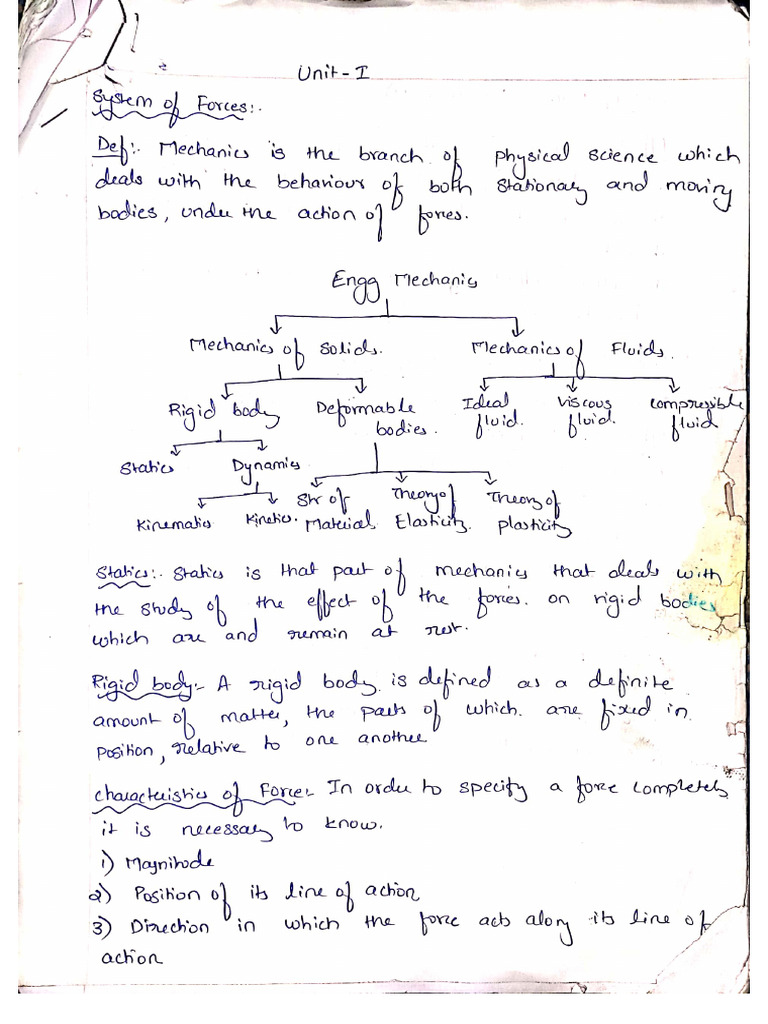 Unit - I
System of Forces:-
Def:- Mechanics is the branch of physical science which
deals with the behaviour of both stationary and moving
bodies, under the action of forces.
Engg Mechanics
Mechanics of Solids. Mechanics of Fluids.
Rigid body Deformable bodies. Ideal fluid. Viscous fluid. compressible fluid
Statics Dynamics
Kinematics Kinetics. Str of Material Theory of Elasticity. Theory of plasticity
Statics:- Statics is that part of mechanics that deals with
the study of the effect of the forces. on rigid bodies
which are and remain at rest.
Rigid body:- A rigid body is defined as a definite
amount of matter, the parts of which are fixed in
position, relative to one another
Characteristics of Force:- In order to specify a force completely
it is necessary to know.
1) Magnitude
2) Position of its line of action
3) Direction in which the force acts along its line of
action